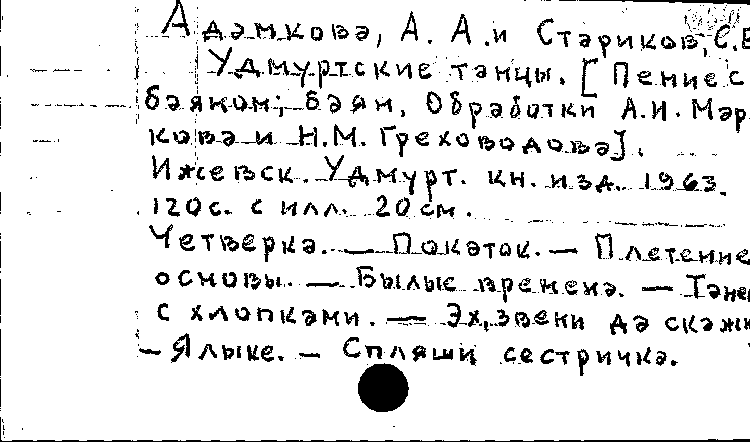 Адамкова, А. А. и Стариков, С.Е
Удмуртские танцы. [Пение с
баяном; баян, Обработки А.И. Мар
кова и Н.М. Греховодова].
Ижевск. Удмурт. кн. изд. 1963.
120с. с илл. 20см.
Четверка. — Покаток. — Плетение
основы. — Былые времена. — Тане
с хлопками. — Эх, звени да скаж
— Ялыке. — Спляши сестричка.